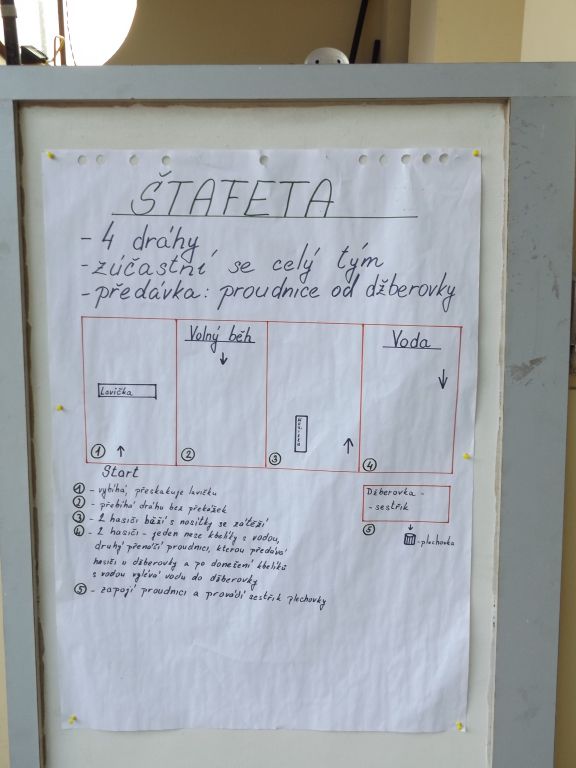 ŠTAFETA
- 4 dráhy
- zúčastní se celý tým
- předávka: proudnice od džberovky
Lavička
1
Volný běh
2
Nosítka
3
Voda
4
Start
Džberovka -
- sestřik
5
- plechovka
1 - vybíhá, přeskakuje lavičku
2 - přebíhá dráhu bez překážek
3 - 2 hasiči běží s nosítky se zátěží
4 - 2 hasiči - jeden nese kbelíky s vodou,
druhý přenáší proudnici, kterou předává
hasiči u džberovky a po donešení kbelíků
s vodou vylévá vodu do džberovky
5 - zapojí proudnici a provádí sestřik plechovky